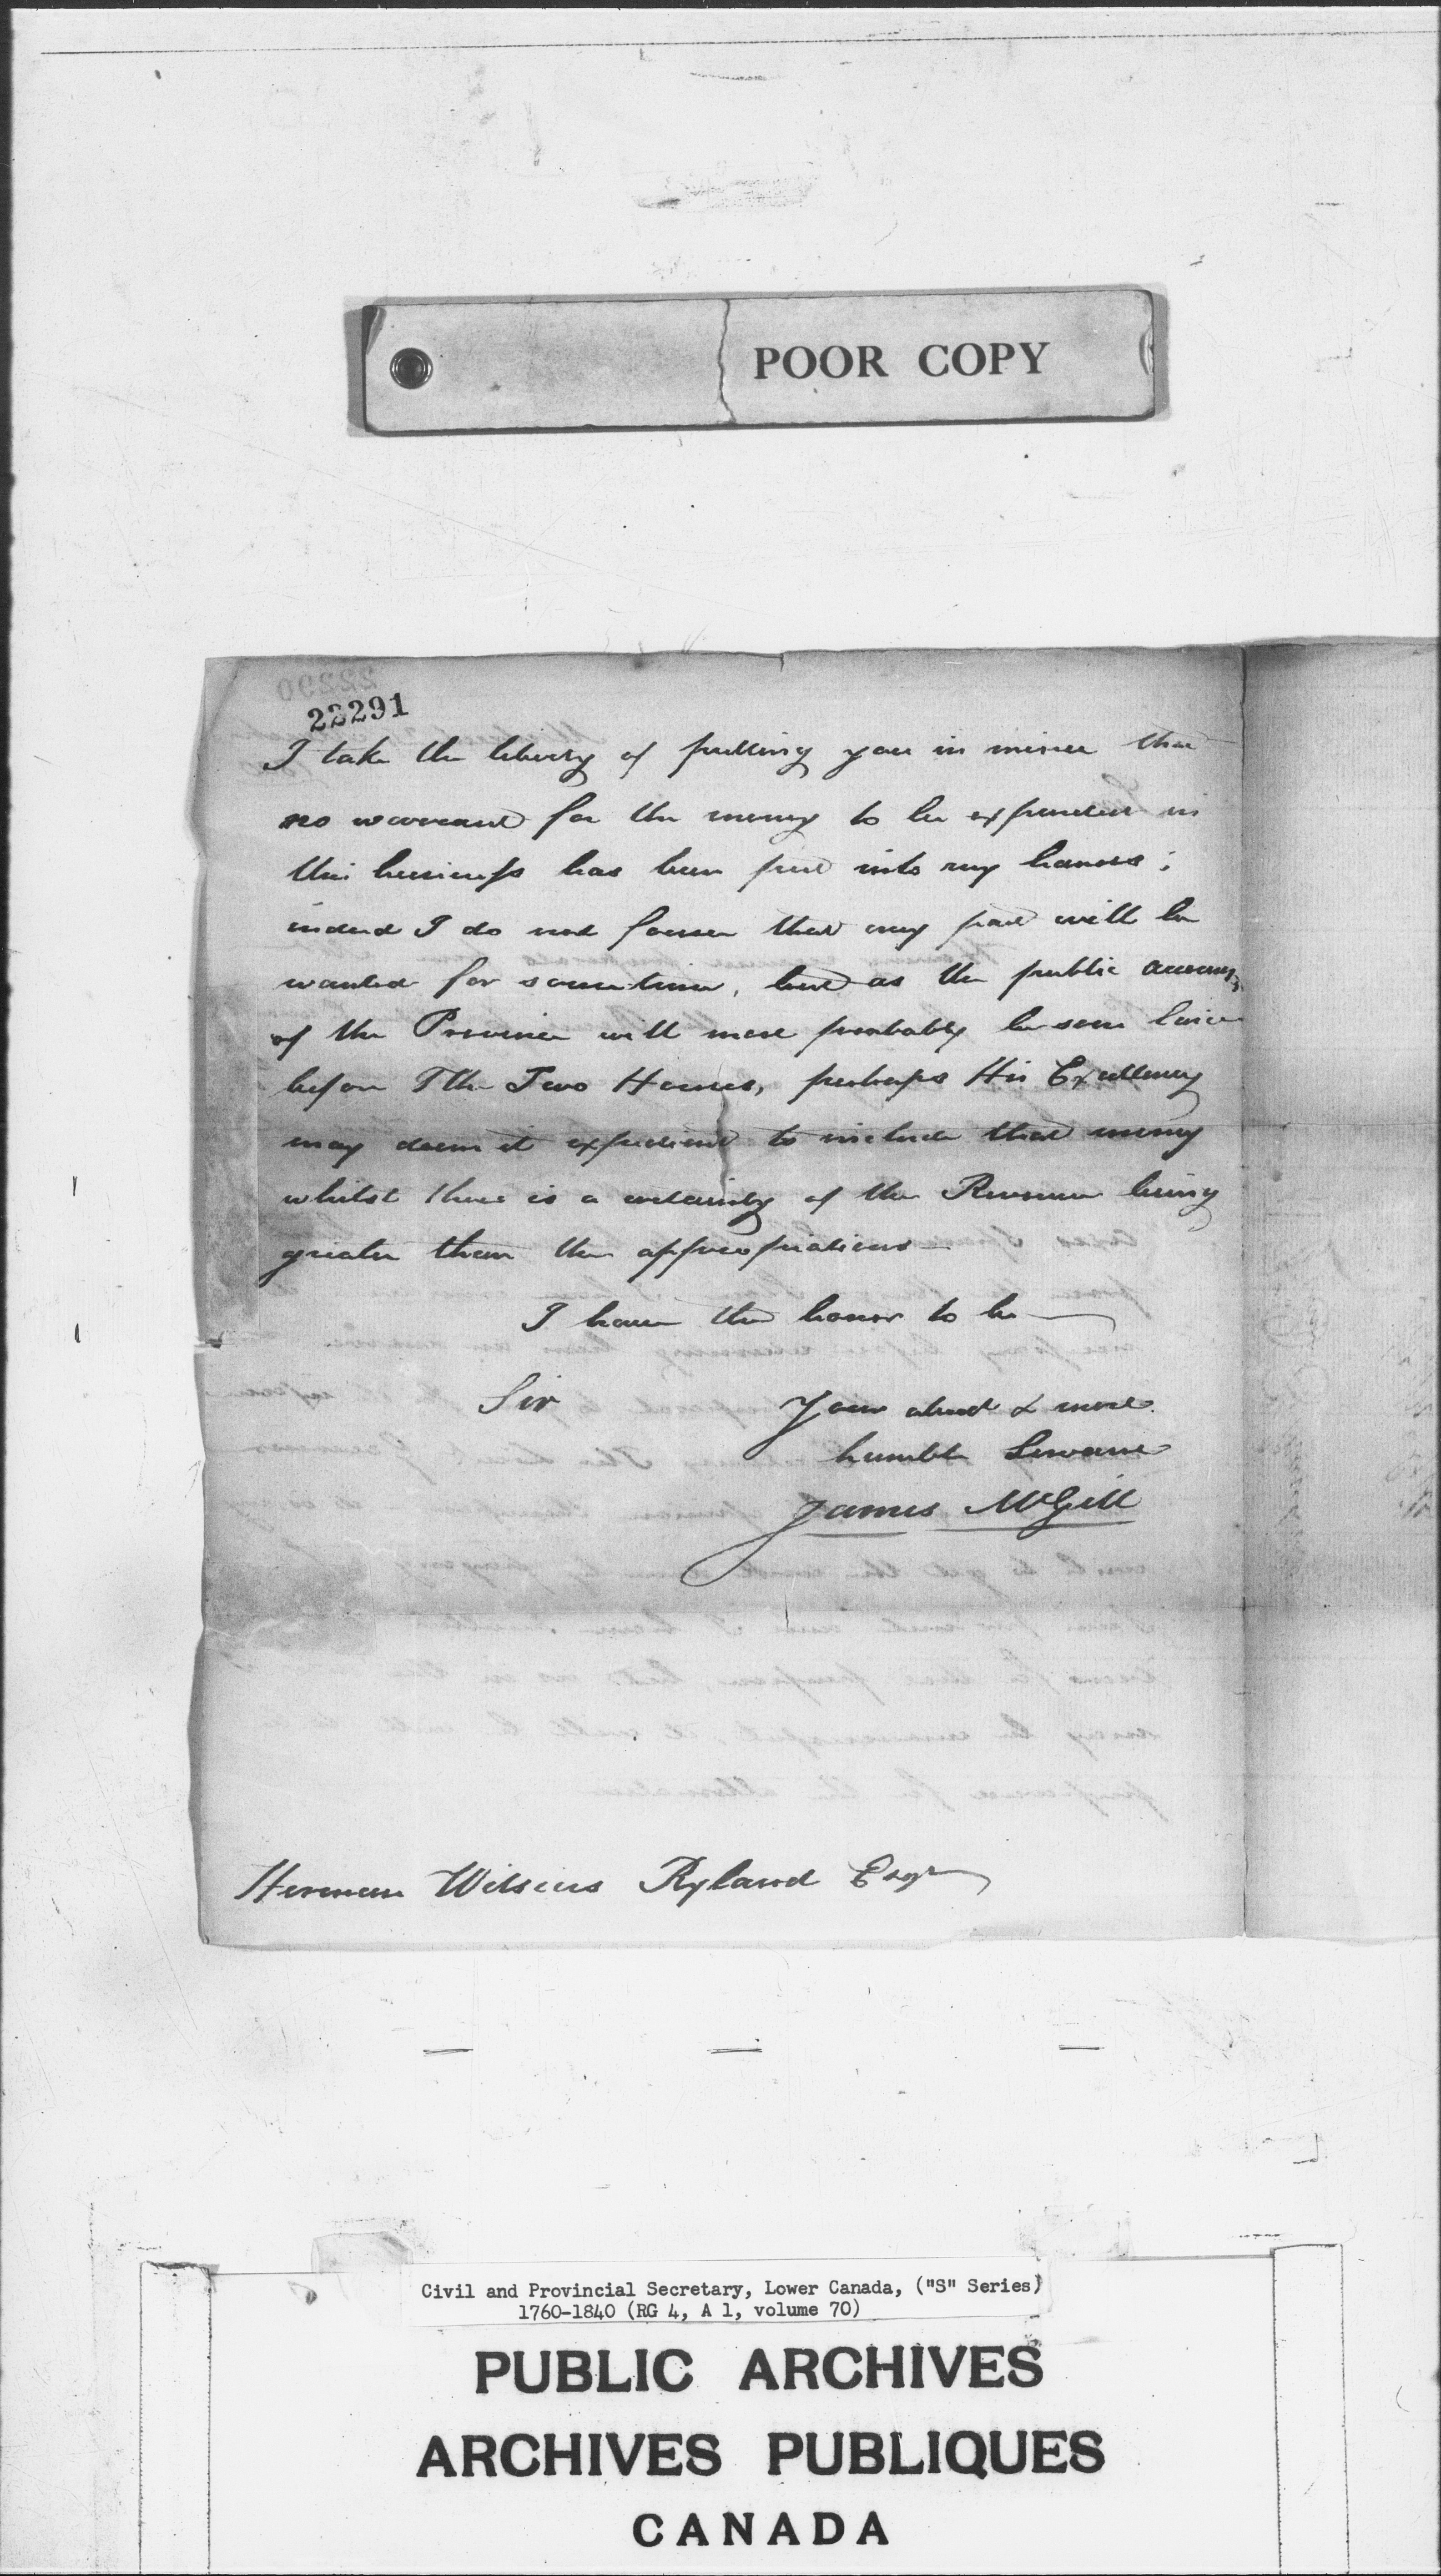 POOR COPY
22290
22291
I take the liberty of putting you in mind that
no warrant for the money to be expended in
this business has been put into my hands;
indeed I do not foresee that any part will be
wanted for sometime, but as the public accounts
of the Province will most probably be soon laid
before The Two Houses, perhaps His Excellency
may deem it expedient to include that money
whilst there is a certainty of the Revenue being
greater than the appropriations
I have the honor to be
Sir Your obedt & most
humble Servant
James McGill
Herman Witsius Ryland Esqr
Civil and Provincial Secretary, Lower Canada, ("S" Series)
1760-1840 (RG 4, A 1, volume 70)
PUBLIC ARCHIVES
ARCHIVES PUBLIQUES
CANADA